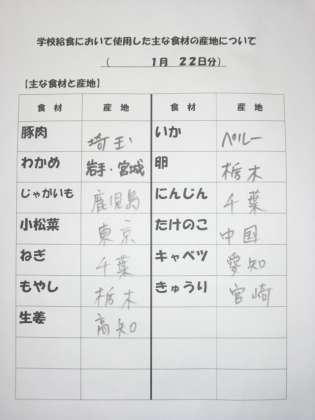 学校給食において使用した主な食材の産地について
（ 1月 22日分）
【主な食材と産地】
食材 産地 食材 産地
豚肉 埼玉 いか ペルー
わかめ 岩手・宮城 卵 栃木
じゃがいも 鹿児島 にんじん 千葉
小松菜 東京 たけのこ 中国
ねぎ 千葉 キャベツ 愛知
もやし 栃木 きゅうり 宮崎
生姜 高知